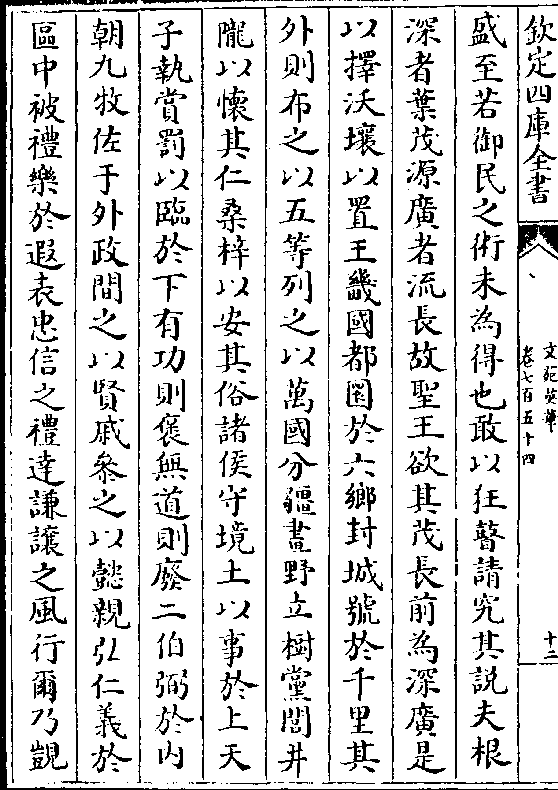 欽定四庫全書
文苑英華
卷七百五十四
十二
盛至若御民之術未為得也敢以狂瞽請究其説夫根
深者葉茂源廣者流長故聖王欲其茂長前為深廣是
以擇沃壤以置王畿國都圍於六鄉封城號於千里其
外則布之以五等列之以萬國分疆畫野立樹黨閭井
隴以懷其仁桑梓以安其俗諸侯守境土以事於上天
子執賞罰以臨於下有功則褒無道則廢二伯弼於内
朝九牧佐于外政間之以賢戚叅之以懿親弘仁義於
區中被禮樂於遐表忠信之禮達謙讓之風行爾乃覬